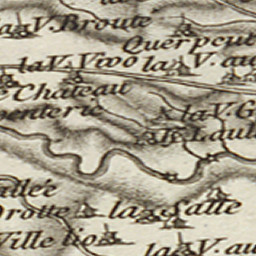 la V. Broute
Querpeut
la V. Vivo la V. au
Chateau
penterie
la V. G
K. Laul
allée
Drotte la Salle
Ville lio
la V. au